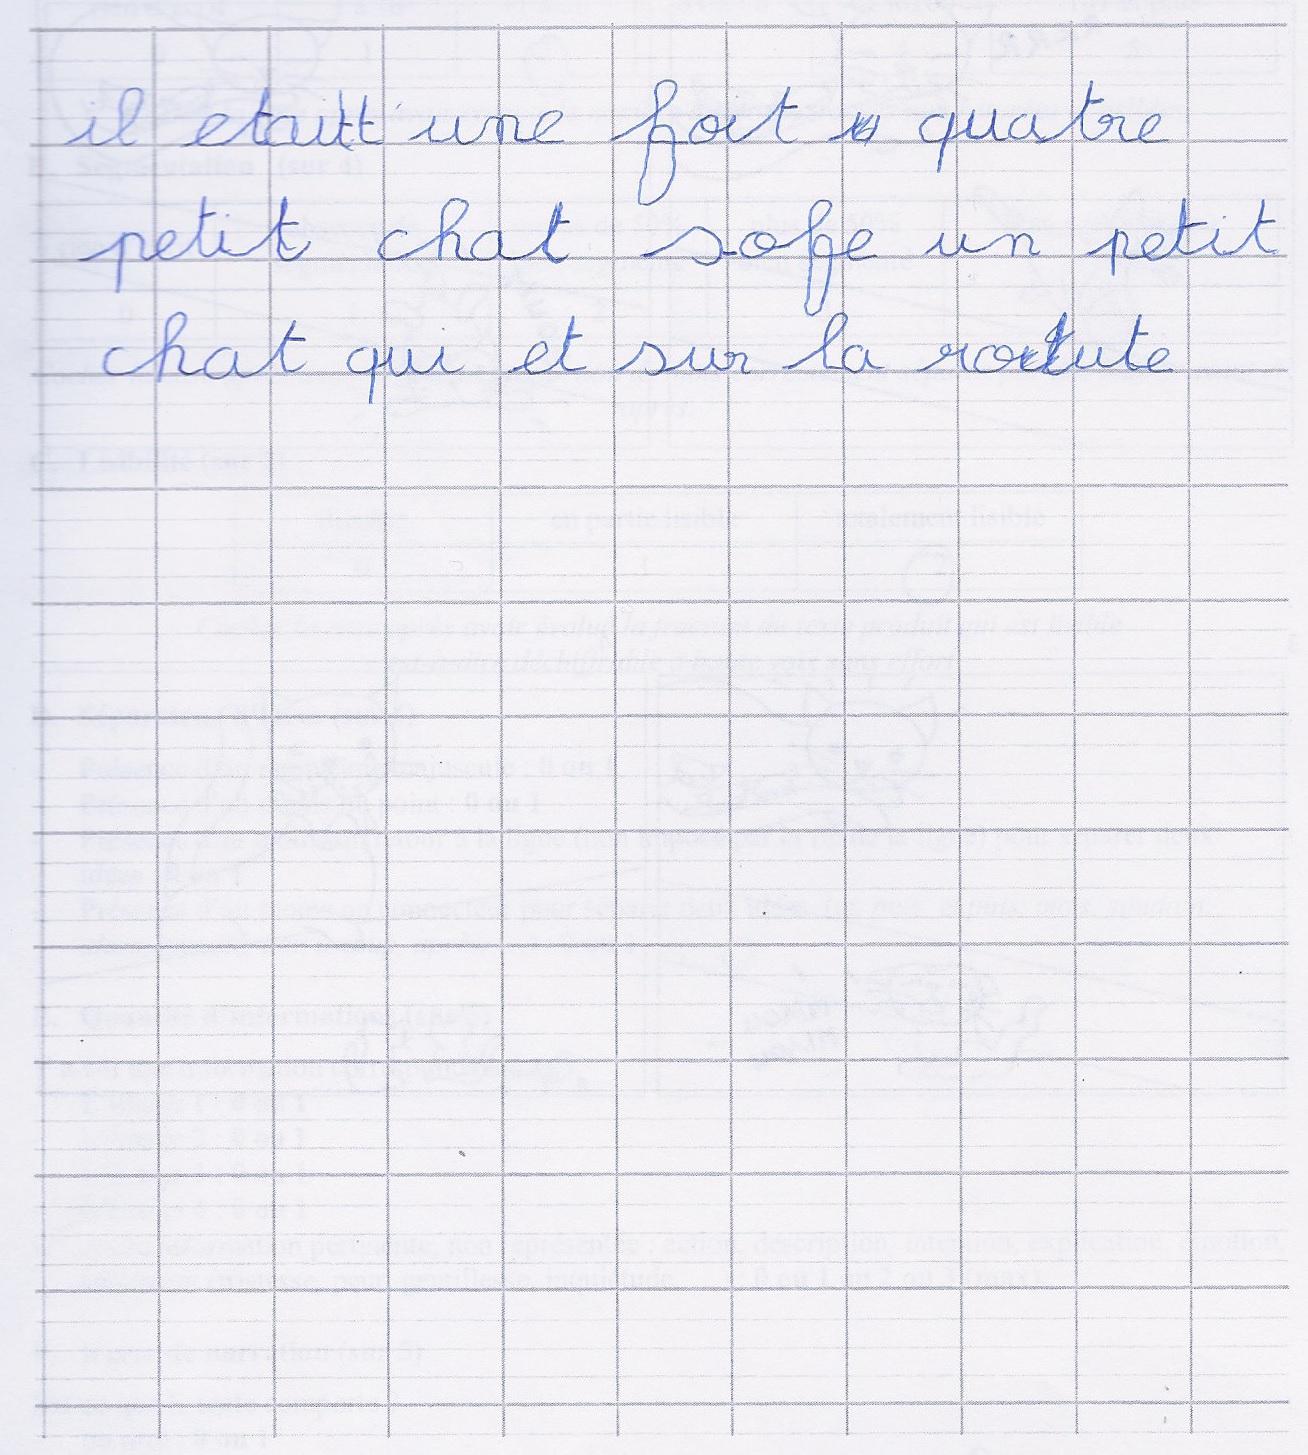 il etaitt une foit quatre
petit chat sofe un petit
chat qui et sur la route